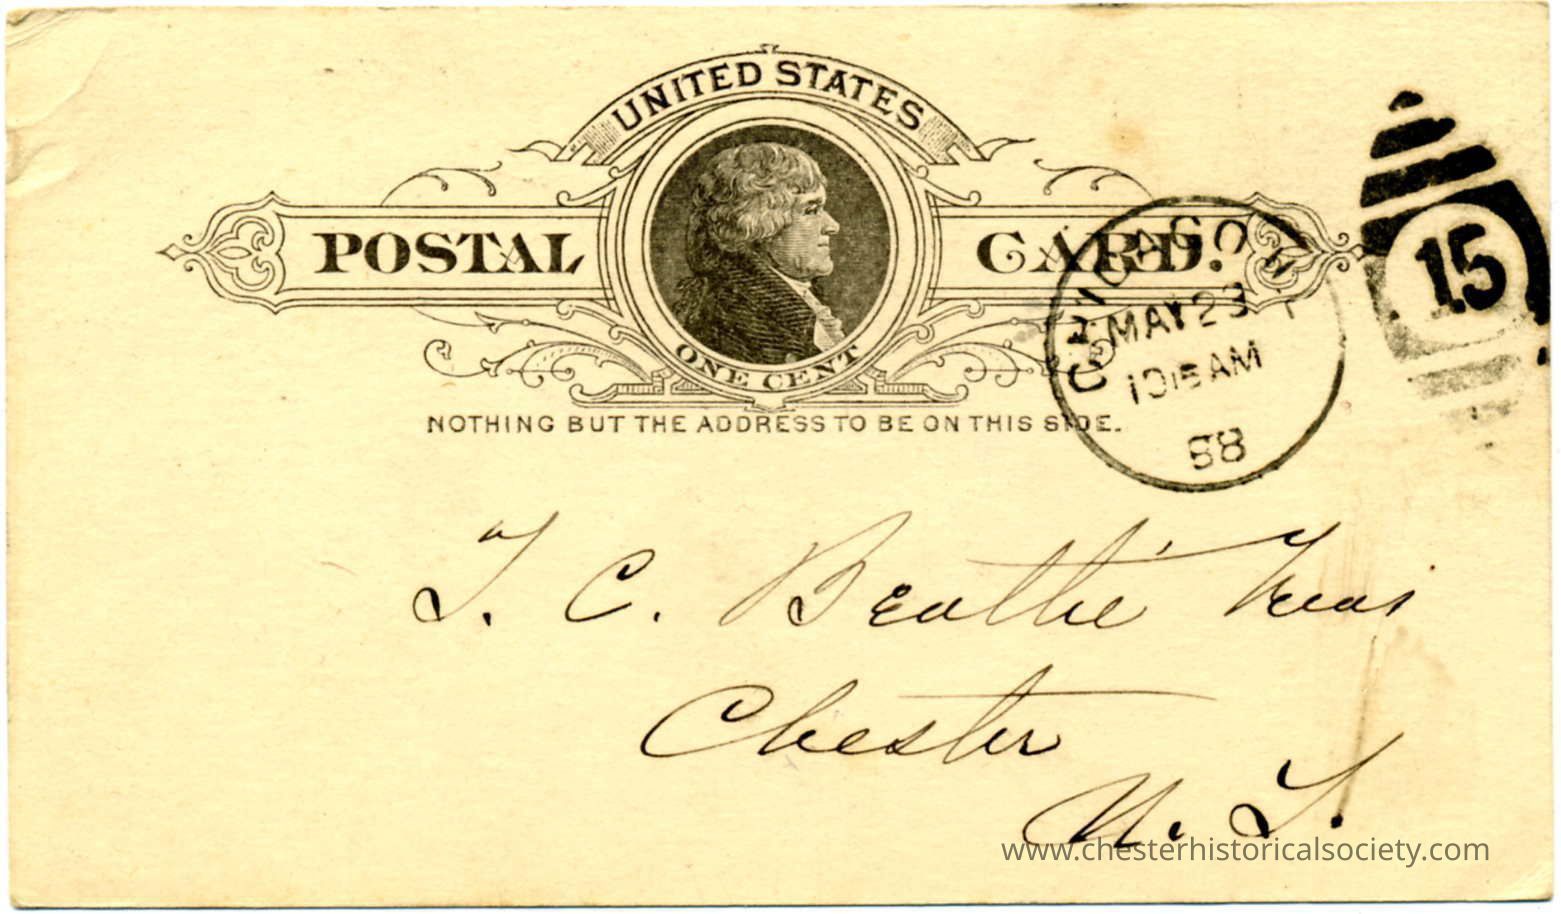 UNITED STATES
POSTAL CARD.
ONE CENT
NOTHING BUT THE ADDRESS TO BE ON THIS SIDE.
CHICAGO
MAY 23
1015 AM
88
15
T. C. Beattie
Chester
N. J.
www.chesterhistoricalsociety.com